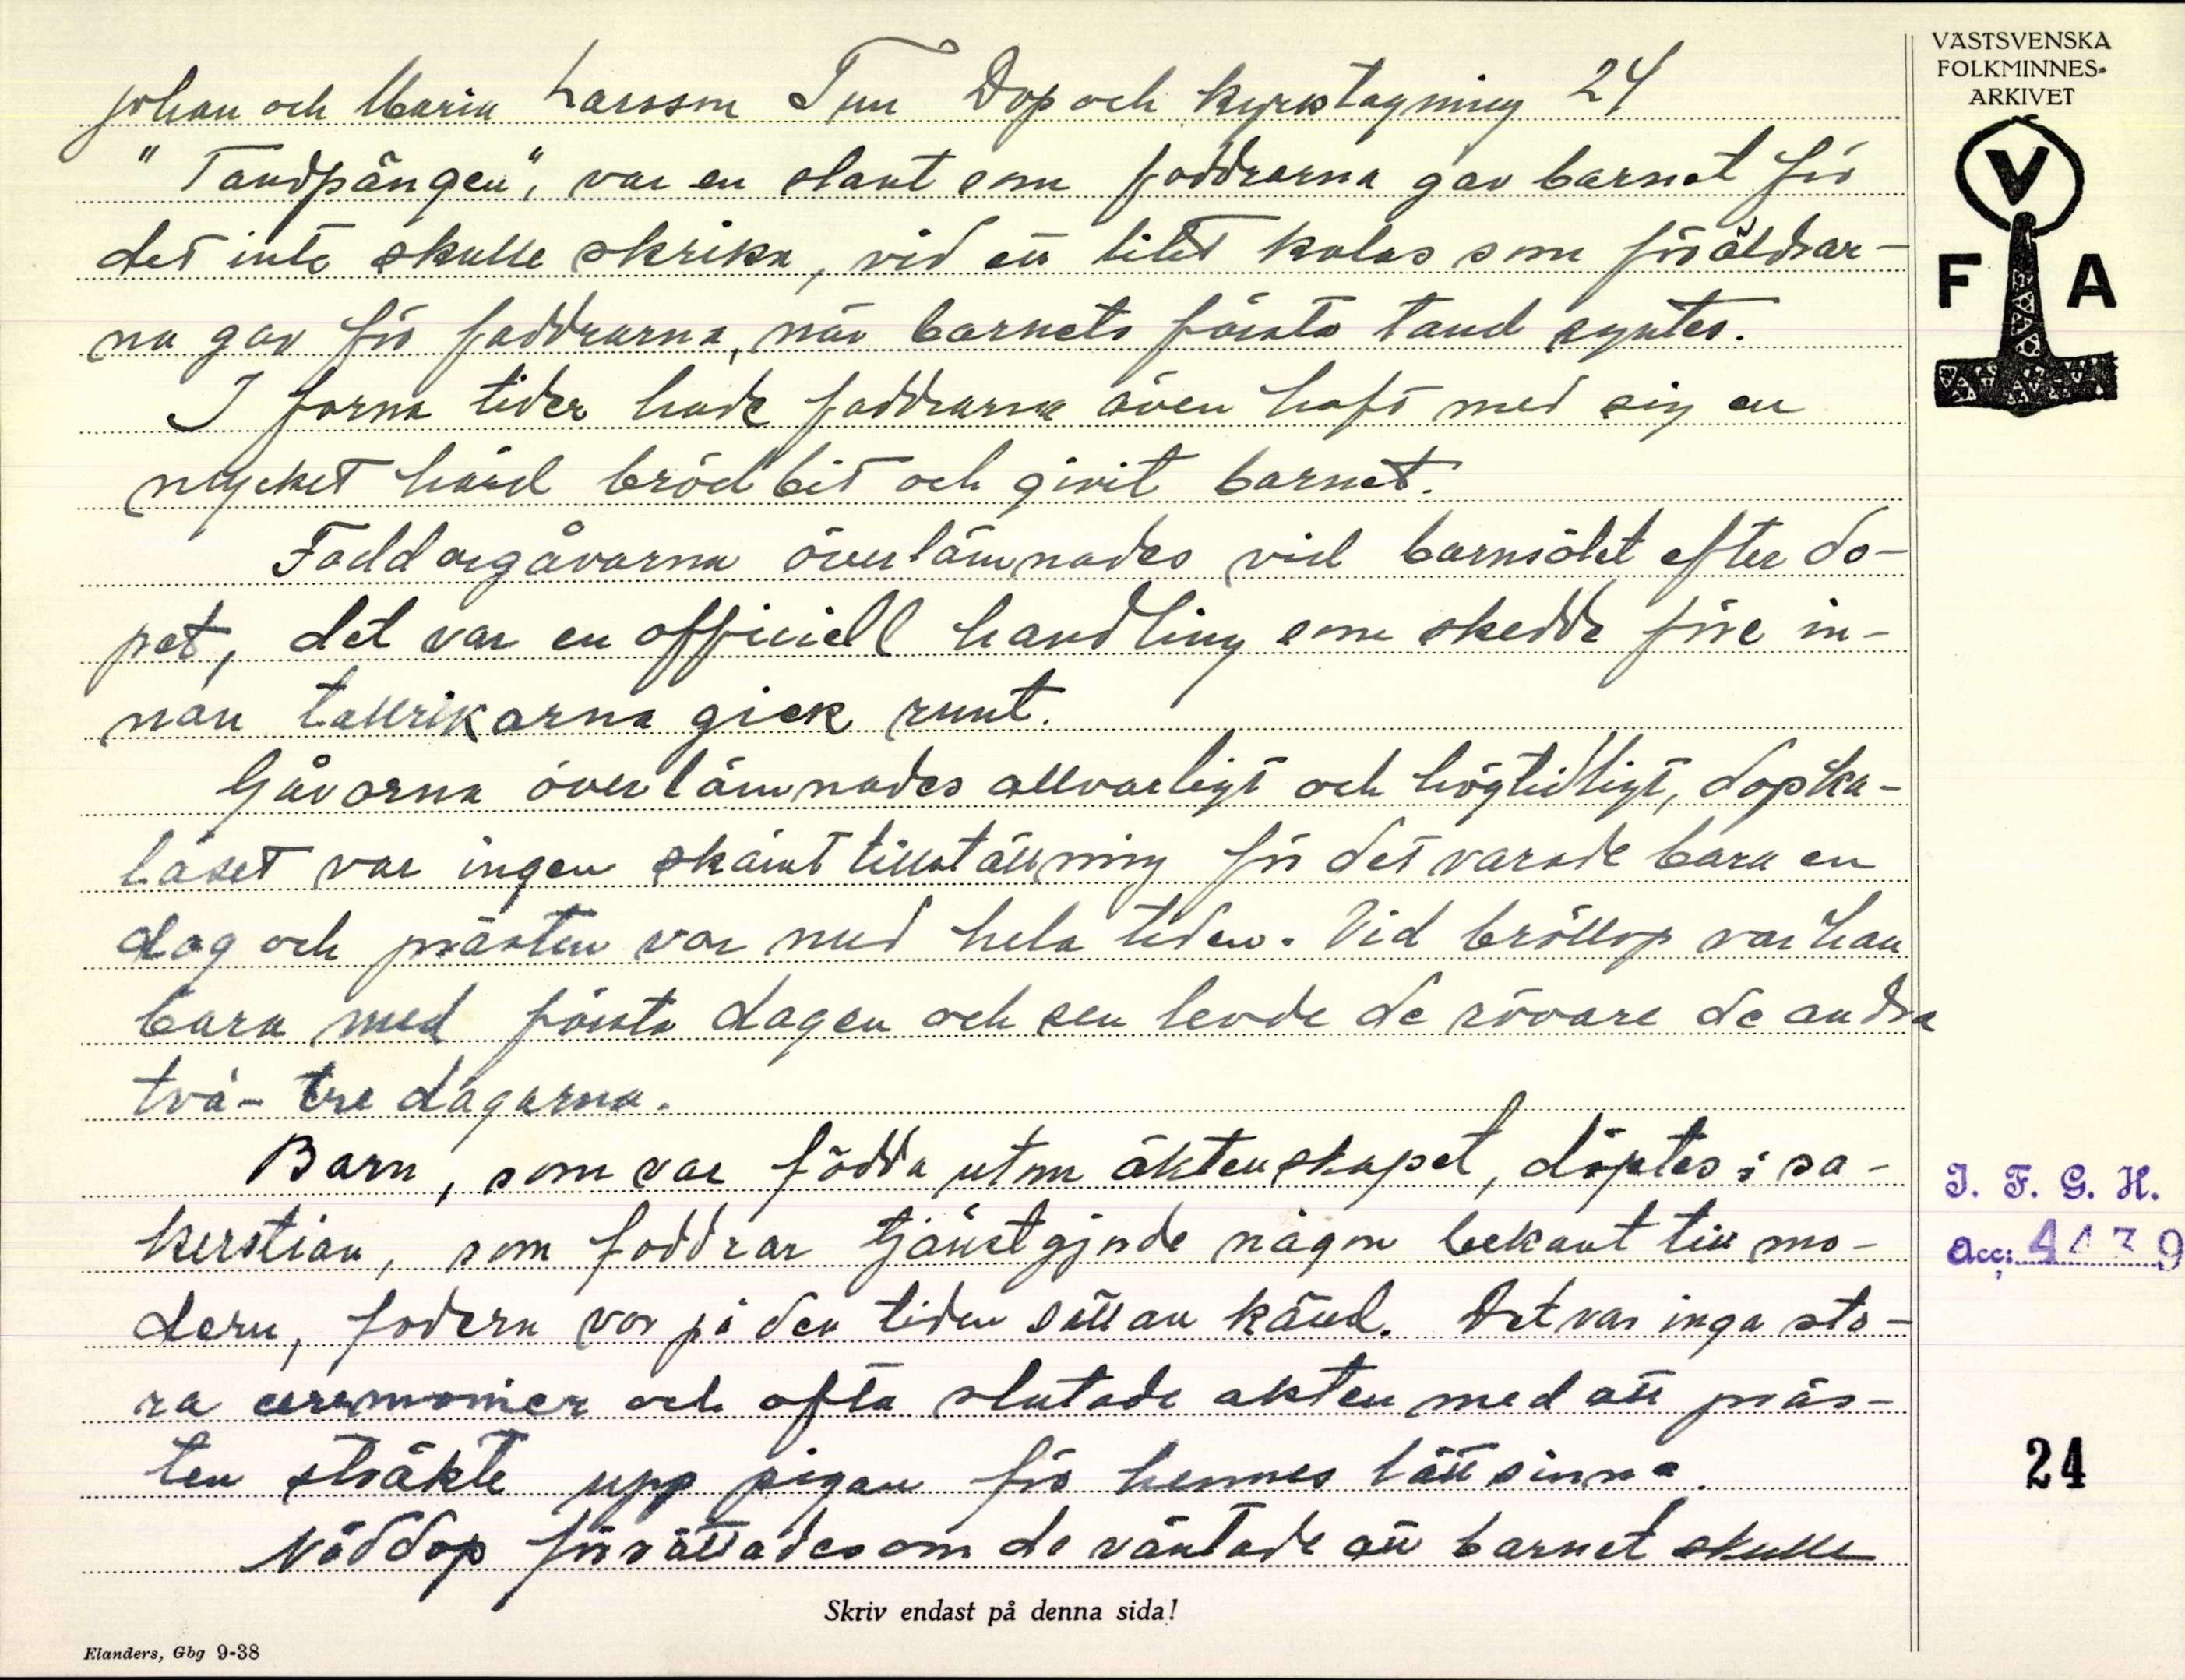 Johan och Maria Larsson Tun Dop och kyrktagning 24
"Tandpängen", var en slant som faddrarna gav barnet för
det inte skulle skrika, vid ett litet kalas som föräldrar-
na gav för faddrarna, när barnets första tand syntes.
I forna tider hade faddrarna även haft med sig en
mycket hård brödbit och givit barnet.
Faddergåvarna överlämnades vid barnsölet efter do-
pet, det var en officiell handling som skedde före in-
nan tallrikarna gick runt.
Gåvorna överlämnades allvarligt och högtidligt, dopka-
laset var ingen skämttillställning för det varade bara en
dag och prästen var med hela tiden. Vid bröllop var han
bara med första dagen och sen levde de rövare de andra
två- tre dagarna.
Barn, som var födda utom äktenskapet, döptes i sa-
kerstian, som faddrar tjänstgjorde någon bekant till mo-
dern, fadern var på den tiden sällan känd. Det var inga sto-
ra ceremonier och ofta slutade akten med att präs-
ten sträkte upp pigan för hennes lättsinne.
Nöddop förrättades om de väntade att barnet skulle
Skriv endast på denna sida!
Elanders, Gbg 9-38
VÄSTSVENSKA
FOLKMINNES-
ARKIVET
V
F A
I. F. G. H.
Acc: 4439
24